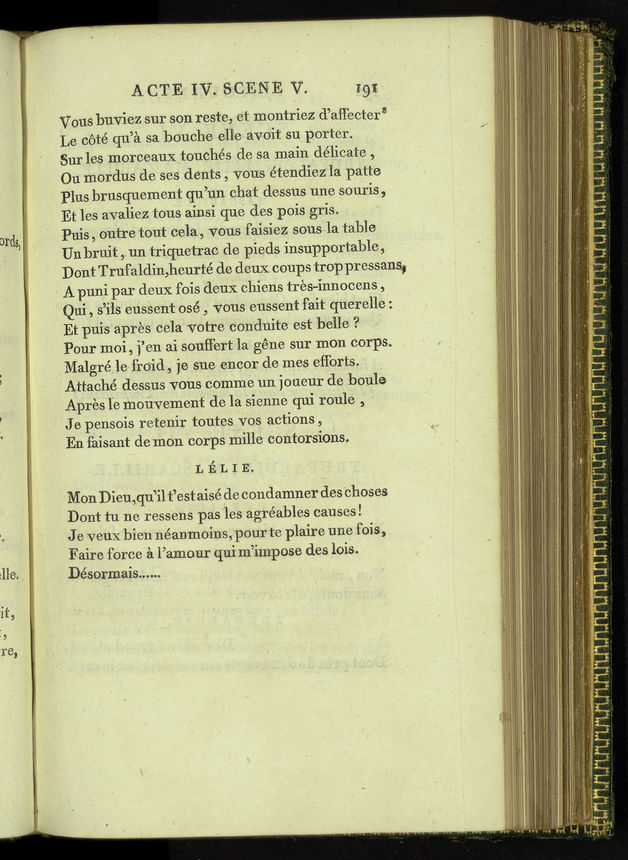 ords,
lle.
it,
re,
ACTE IV. SCENE V. 191
Vous buviez sur son reste, et montriez d'affecter
Le côté qu'à sa bouche elle avoit su porter.
Sur les morceaux touchés de sa main délicate,
Ou mordus de ses dents, vous étendiez la patte
Plus brusquement qu'un chat dessus une souris,
Et les avaliez tous ainsi que des pois gris.
Puis, outre tout cela, vous faisiez sous la table
Un bruit, un triquetrac de pieds insupportable,
Dont Trufaldin, heurté de deux coups trop pressans,
A puni par deux fois deux chiens très-innocens,
Qui, s'ils eussent osé, vous eussent fait querelle:
Et puis après cela votre conduite est belle?
Pour moi, j'en ai souffert la gêne sur mon corps.
Malgré le froid, je sue encor de mes efforts.
Attaché dessus vous comme un joueur de boule
Après le mouvement de la sienne qui roule,
Je pensois retenir toutes vos actions,
En faisant de mon corps mille contorsions.
LÉLIE.
Mon Dieu, qu'il t'est aisé de condamner des choses
Dont tu ne ressens pas les agréables causes!
Je veux bien néanmoins, pour te plaire une fois,
Faire force à l'amour qui m'impose des lois.
Désormais......